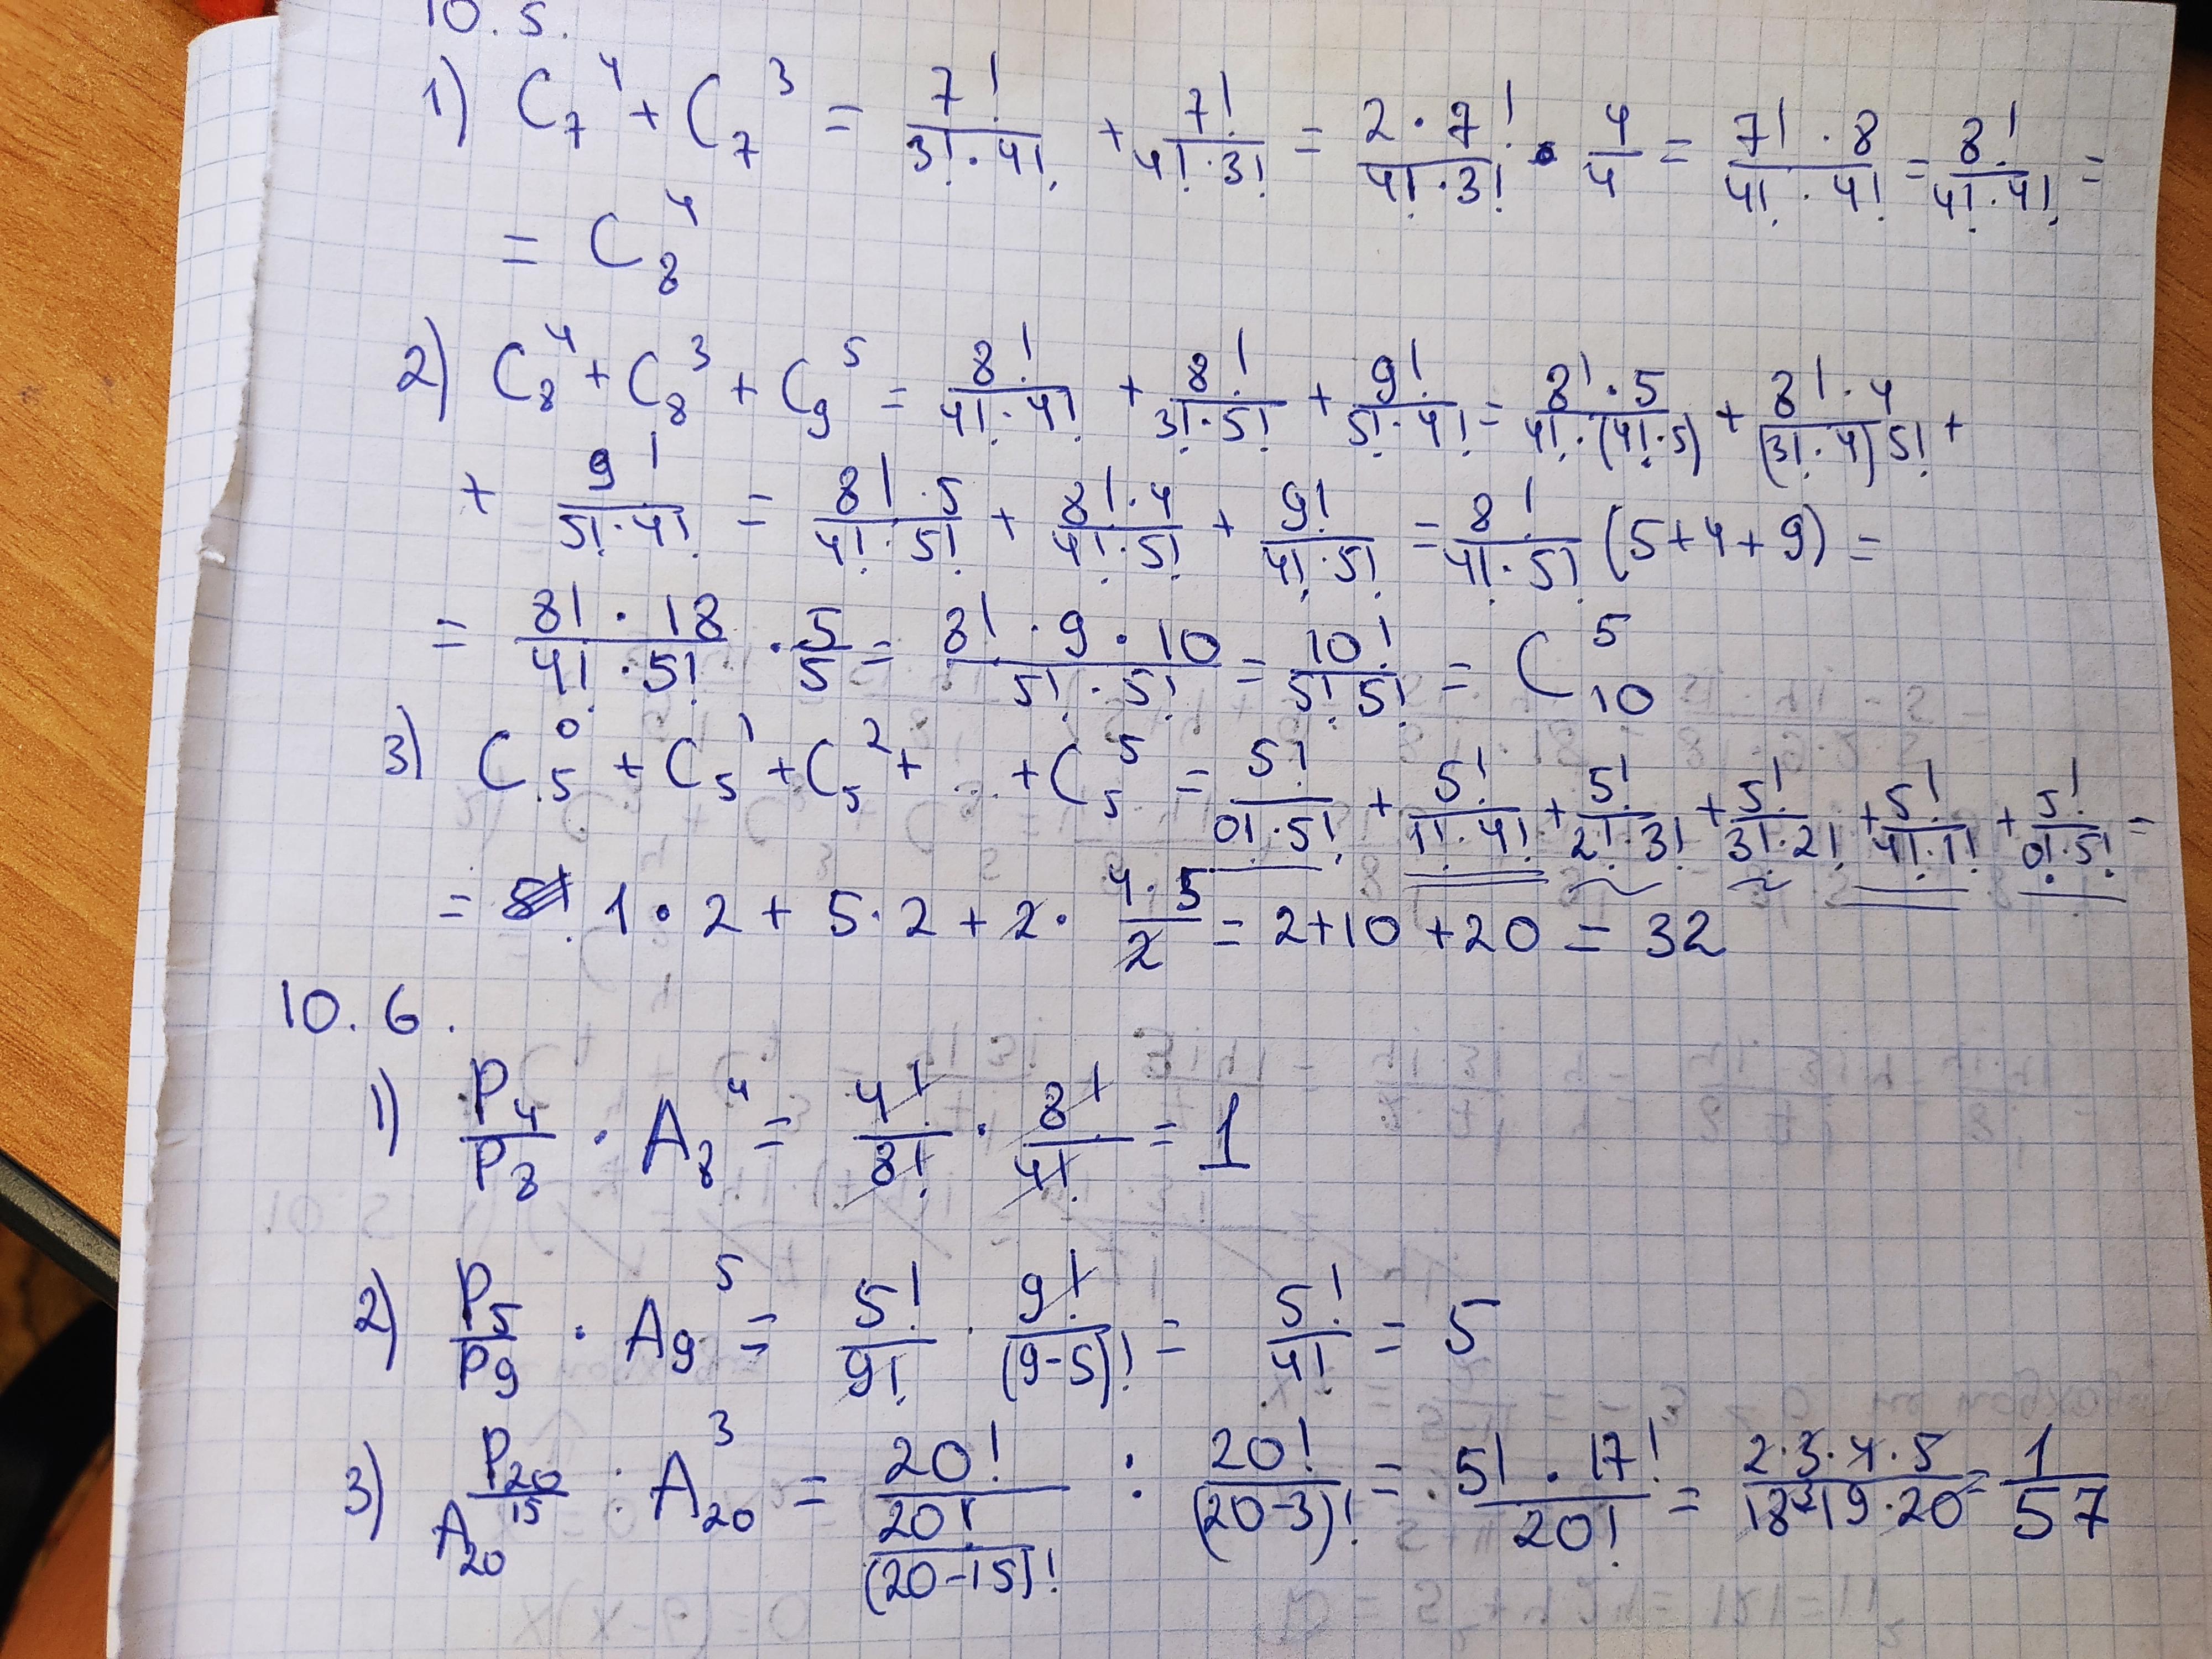 10.5.
1) C_7^4 + C_7^3 = 7!/(3!·4!) + 7!/(4!·3!) = (2·7!)/(4!·3!) · 4/4 = (7!·8)/(4!·4!) = 8!/(4!·4!) =
= C_8^4
2) C_8^4 + C_8^3 + C_9^5 = 8!/(4!·4!) + 8!/(3!·5!) + 9!/(5!·4!) = (8!·5)/(4!·(4!·5)) + (8!·4)/((3!·4)5!) +
+ 9!/(5!·4!) = (8!·5)/(4!·5!) + (8!·4)/(4!·5!) + 9!/(4!·5!) = 8!/(4!·5!) (5+4+9) =
= (8!·18)/(4!·5!) · 5/5 = (8!·9·10)/(5!·5!) = 10!/(5!5!) = C_10^5
3) C_5^0 + C_5^1 + C_5^2 + ... + C_5^5 = 5!/(0!·5!) + 5!/(1!·4!) + 5!/(2!·3!) + 5!/(3!·2!) + 5!/(4!·1!) + 5!/(0!·5!) =
= 1·2 + 5·2 + 2·(4·5)/2 = 2+10+20 = 32
10.6.
1) P_4/P_8 · A_8^4 = 4!/8! · 8!/4! = 1
2) P_5/P_9 · A_9^5 = 5!/9! · 9!/(9-5)! = 5!/4! = 5
3) P_20/A_20^15 : A_20^3 = 20!/(20!/(20-15)!) : 20!/(20-3)! = (5!·17!)/20! = (2·3·4·5)/(18·19·20) = 1/57